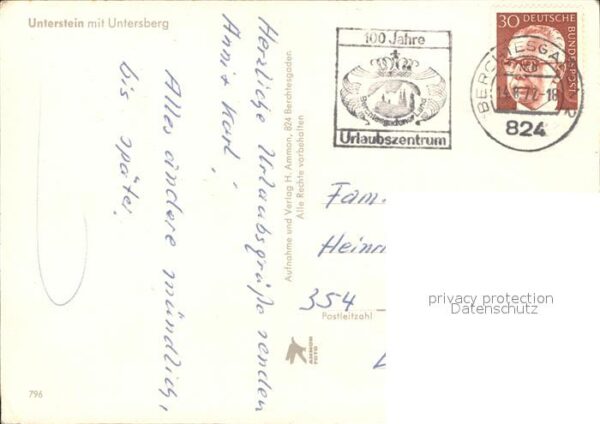 Unterstein mit Untersberg
Herzliche Urlaubsgrüße senden
Anni + Karl!
Alles andere mündlich,
bis später.
Aufnahme und Verlag H. Ammon, 824 Berchtesgaden
Alle Rechte vorbehalten
100 Jahre
Berchtesgadener Land
Urlaubszentrum
30 DEUTSCHE
BUNDESPOST
BERCHTESGA
824
Fam.
Heinr
354
Postleitzahl
privacy protection
Datenschutz
AMMON
FOTO
796